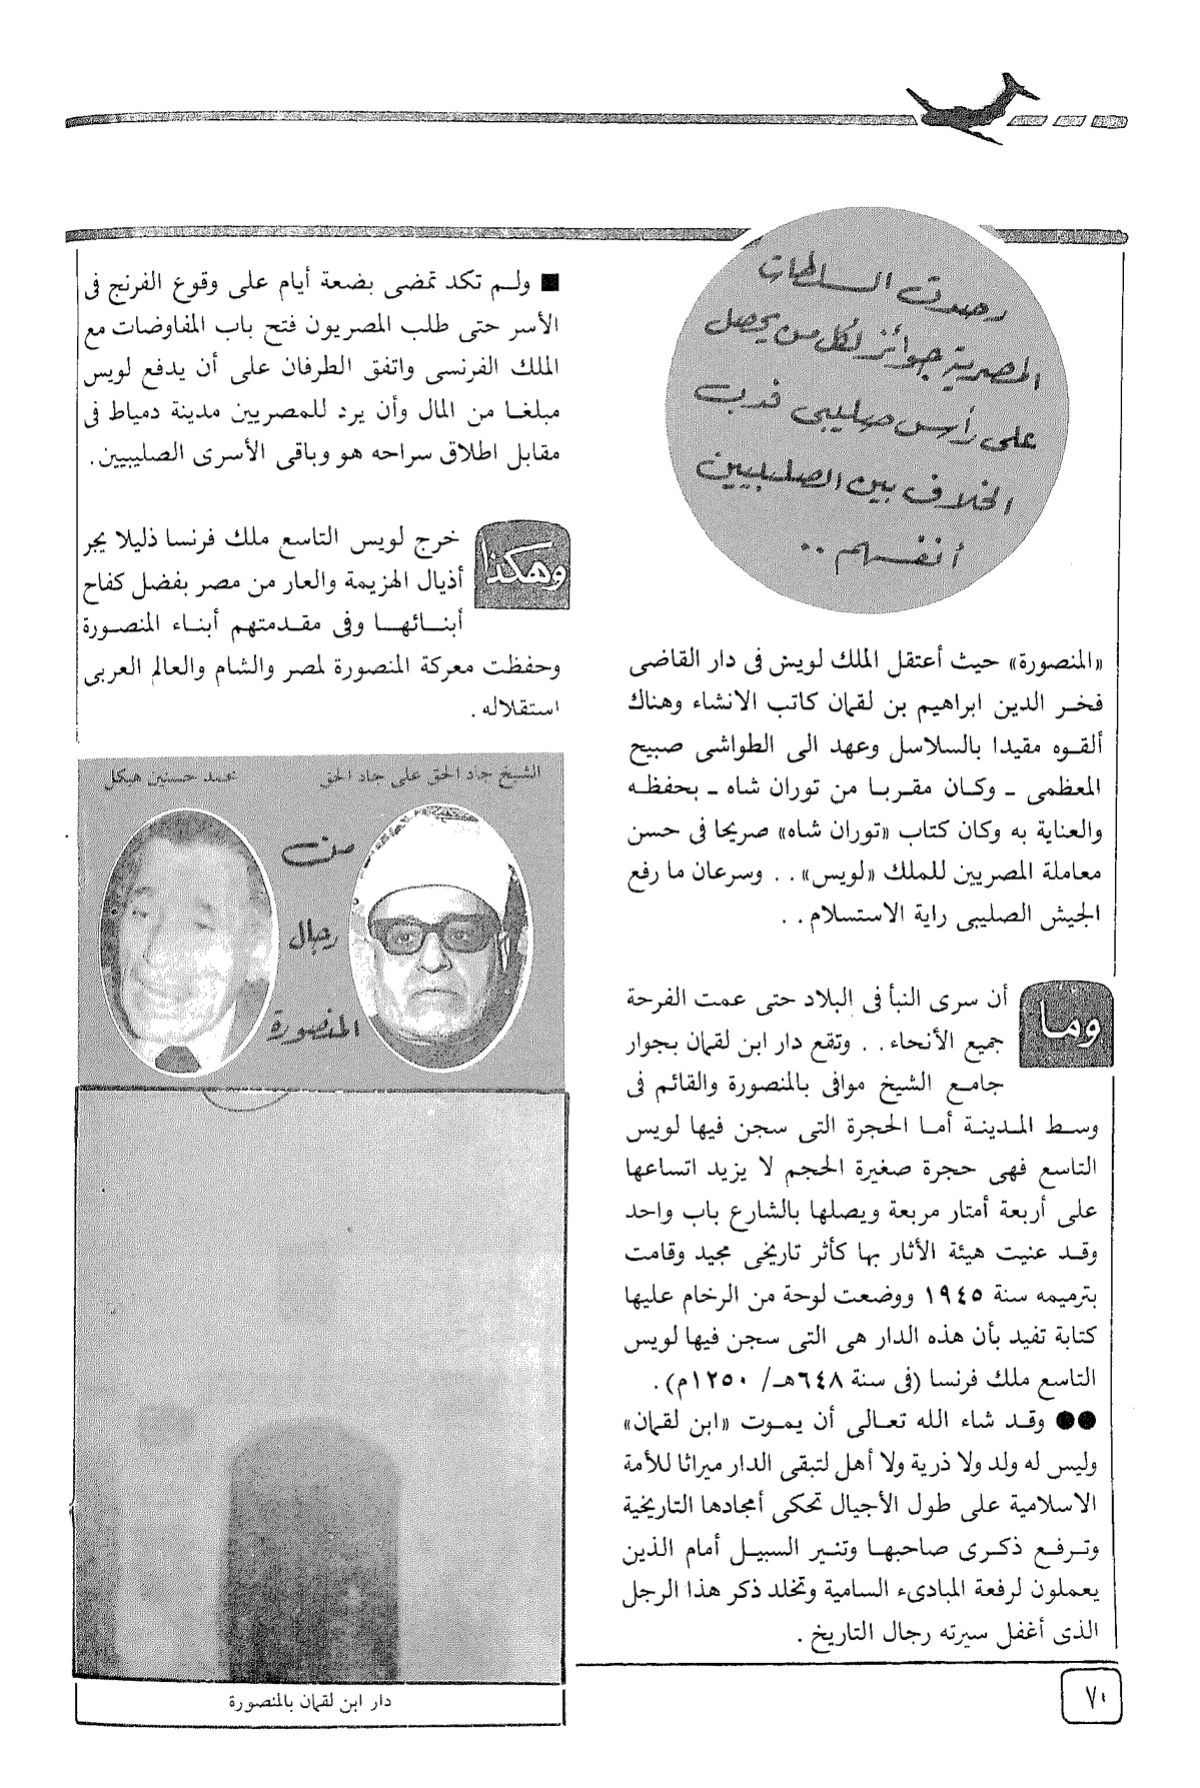 رصدت السلطات
المصرية جوائز لكل من يحصل
على رأس صليبى فدب
الخلاف بين الصليبيين
أنفسهم ..
«المنصورة» حيث أعتقل الملك لويس فى دار القاضى
فخـر الدين ابراهيم بن لقمان كاتب الانشاء وهناك
ألقـوه مقيدا بالسلاسل وعهد الى الطواشى صبيح
المعظمى ـ وكـان مقربـا من توران شاه ـ بحفظـه
والعناية به وكان كتاب «توران شاه» صريحا فى حسن
معاملة المصريين للملك «لويس» . . وسرعان ما رفع
الجيش الصليبى راية الاستسلام . .
وما أن سرى النبأ فى البلاد حتى عمت الفرحة
جميع الأنحاء . . وتقع دار ابن لقمان بجوار
جامـع الشيخ موافى بالمنصورة والقائم فى
وسـط المـدينـة أمـا الحجرة التى سجن فيها لويس
التاسع فهى حجرة صغيرة الحجم لا يزيد اتساعها
على أربعة أمتار مربعة ويصلها بالشارع باب واحد
وقـد عنيت هيئة الأثار بها كأثر تاريخى مجيد وقامت
بترميمه سنة ١٩٤٥ ووضعت لوحة من الرخام عليها
كتابة تفيد بأن هذه الدار هى التى سجن فيها لويس
التاسع ملك فرنسا (فى سنة ٦٤٨هـ/ ١٢٥٠م) .
●● وقـد شاء الله تعـالى أن يمـوت «ابن لقمان»
وليس له ولد ولا ذرية ولا أهل لتبقى الدار ميراثا للأمة
الاسلامية على طول الأجيال تحكى أمجادها التاريخية
وتـرفـع ذكـرى صاحبهـا وتنـير السبيـل أمام الذين
يعملون لرفعة المبادىء السامية وتخلد ذكر هذا الرجل
الذى أغفل سيرته رجال التاريخ .
■ ولـم تكد تمضى بضعة أيام على وقوع الفرنج فى
الأسر حتى طلب المصريون فتح باب المفاوضات مع
الملك الفرنسى واتفق الطرفان على أن يدفع لويس
مبلغـا من المال وأن يرد للمصريين مدينة دمياط فى
مقابل اطلاق سراحه هو وباقى الأسرى الصليبيين .
وهكذا خرج لويس التاسع ملك فرنسا ذليلا يجر
أذيال الهزيمة والعار من مصر بفضل كفاح
أبنـائهـا وفى مقـدمتهم أبنـاء المنصـورة
وحفظت معركة المنصورة لمصر والشام والعالم العربى
استقلاله .
الشيخ جاد الحق على جاد الحق
محمد حسنين هيكل
من
رجال
المنصورة
دار ابن لقمان بالمنصورة
٧٠